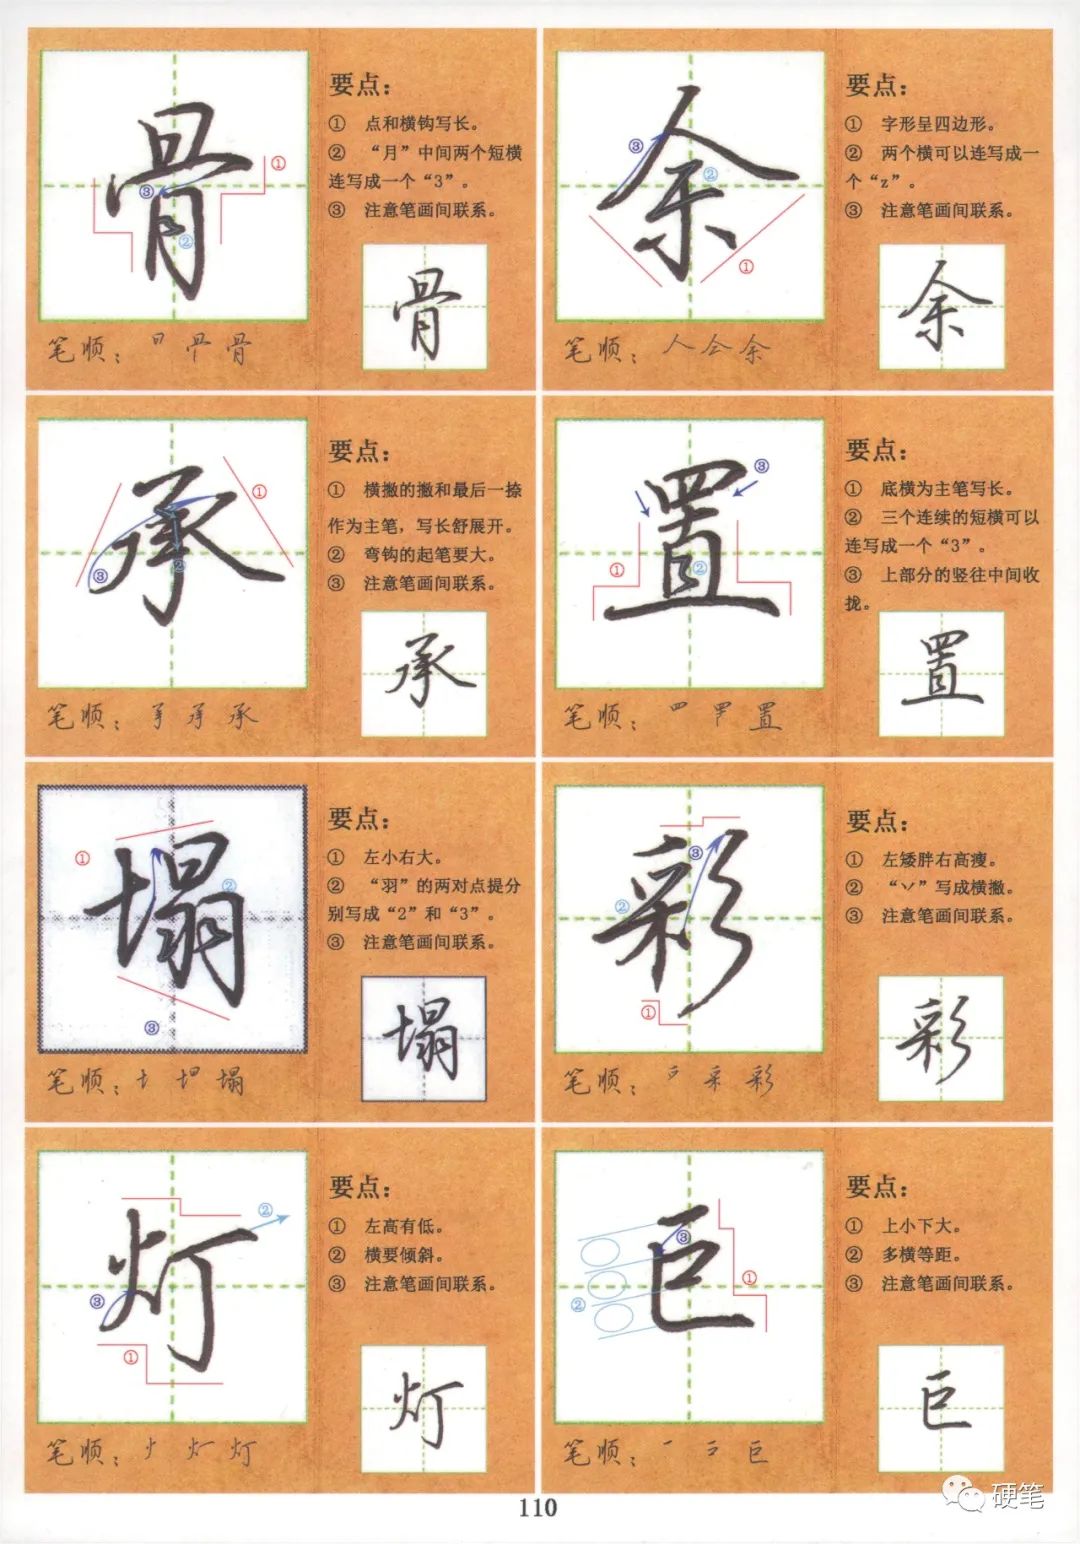 骨
要点：
① 点和横钩写长。
② “月”中间两个短横
连写成一个“3”。
③ 注意笔画间联系。
① ② ③
骨
笔顺： 骨
余
要点：
① 字形呈四边形。
② 两个横可以连写成一
个“z”。
③ 注意笔画间联系。
① ② ③
余
笔顺：人 仐 余
承
要点：
① 横撇的撇和最后一捺
作为主笔，写长舒展开。
② 弯钩的起笔要大。
③ 注意笔画间联系。
① ② ③
承
笔顺： 承
置
要点：
① 底横为主笔写长。
② 三个连续的短横可以
连写成一个“3”。
③ 上部分的竖往中间收
拢。
① ② ③
置
笔顺：罒 置
塌
要点：
① 左小右大。
② “羽”的两对点提分
别写成“2”和“3”。
③ 注意笔画间联系。
① ② ③
塌
笔顺： 塌
彩
要点：
① 左矮胖右高瘦。
② “丷”写成横撇。
③ 注意笔画间联系。
① ② ③ ①
彩
笔顺： 采 彩
灯
要点：
① 左高有低。
② 横要倾斜。
③ 注意笔画间联系。
① ② ③
灯
笔顺： 灯
巨
要点：
① 上小下大。
② 多横等距。
③ 注意笔画间联系。
① ② ③
巨
笔顺：一 巨
110
硬笔